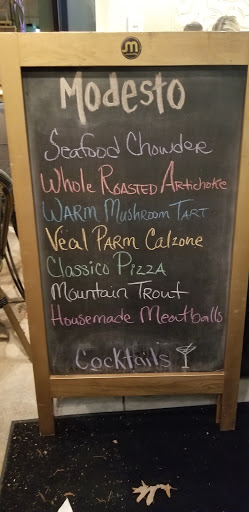 Modesto
Seafood Chowder
Whole Roasted Artichoke
Warm Mushroom Tart
Veal Parm Calzone
Classico Pizza
Mountain Trout
Housemade Meatballs
Cocktails